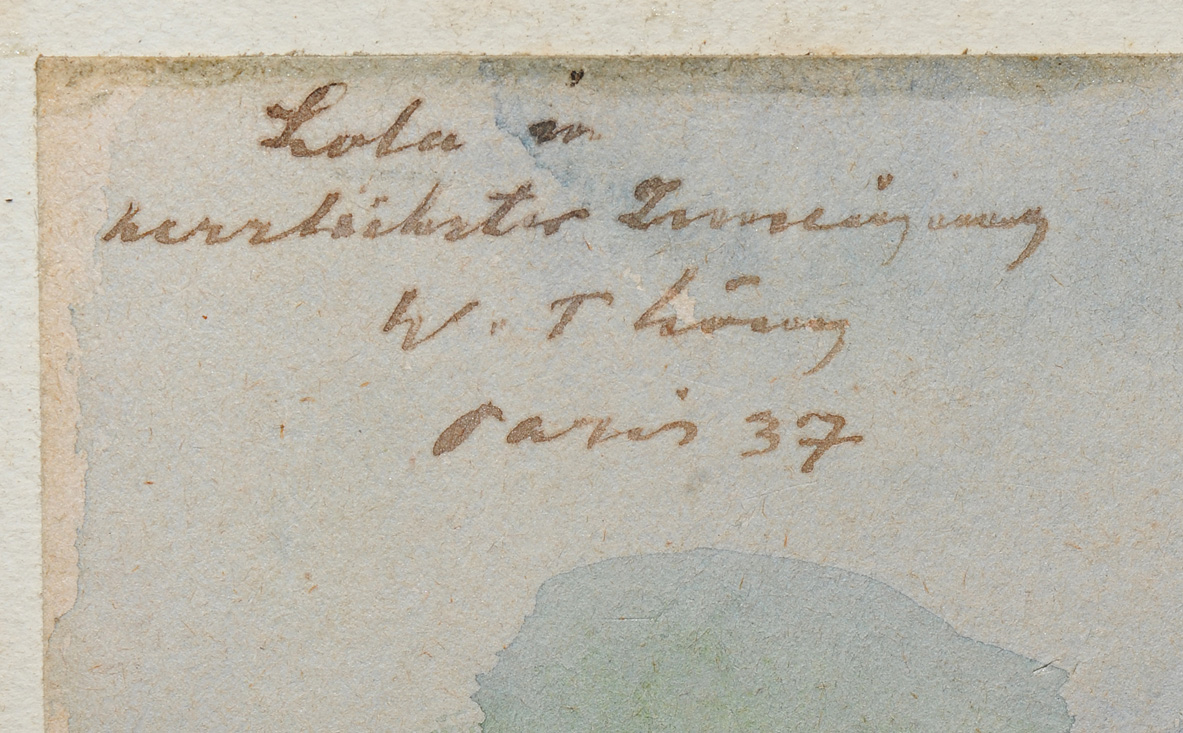 Lola in
herzlichster Zuneigung
W. T König
Paris 37